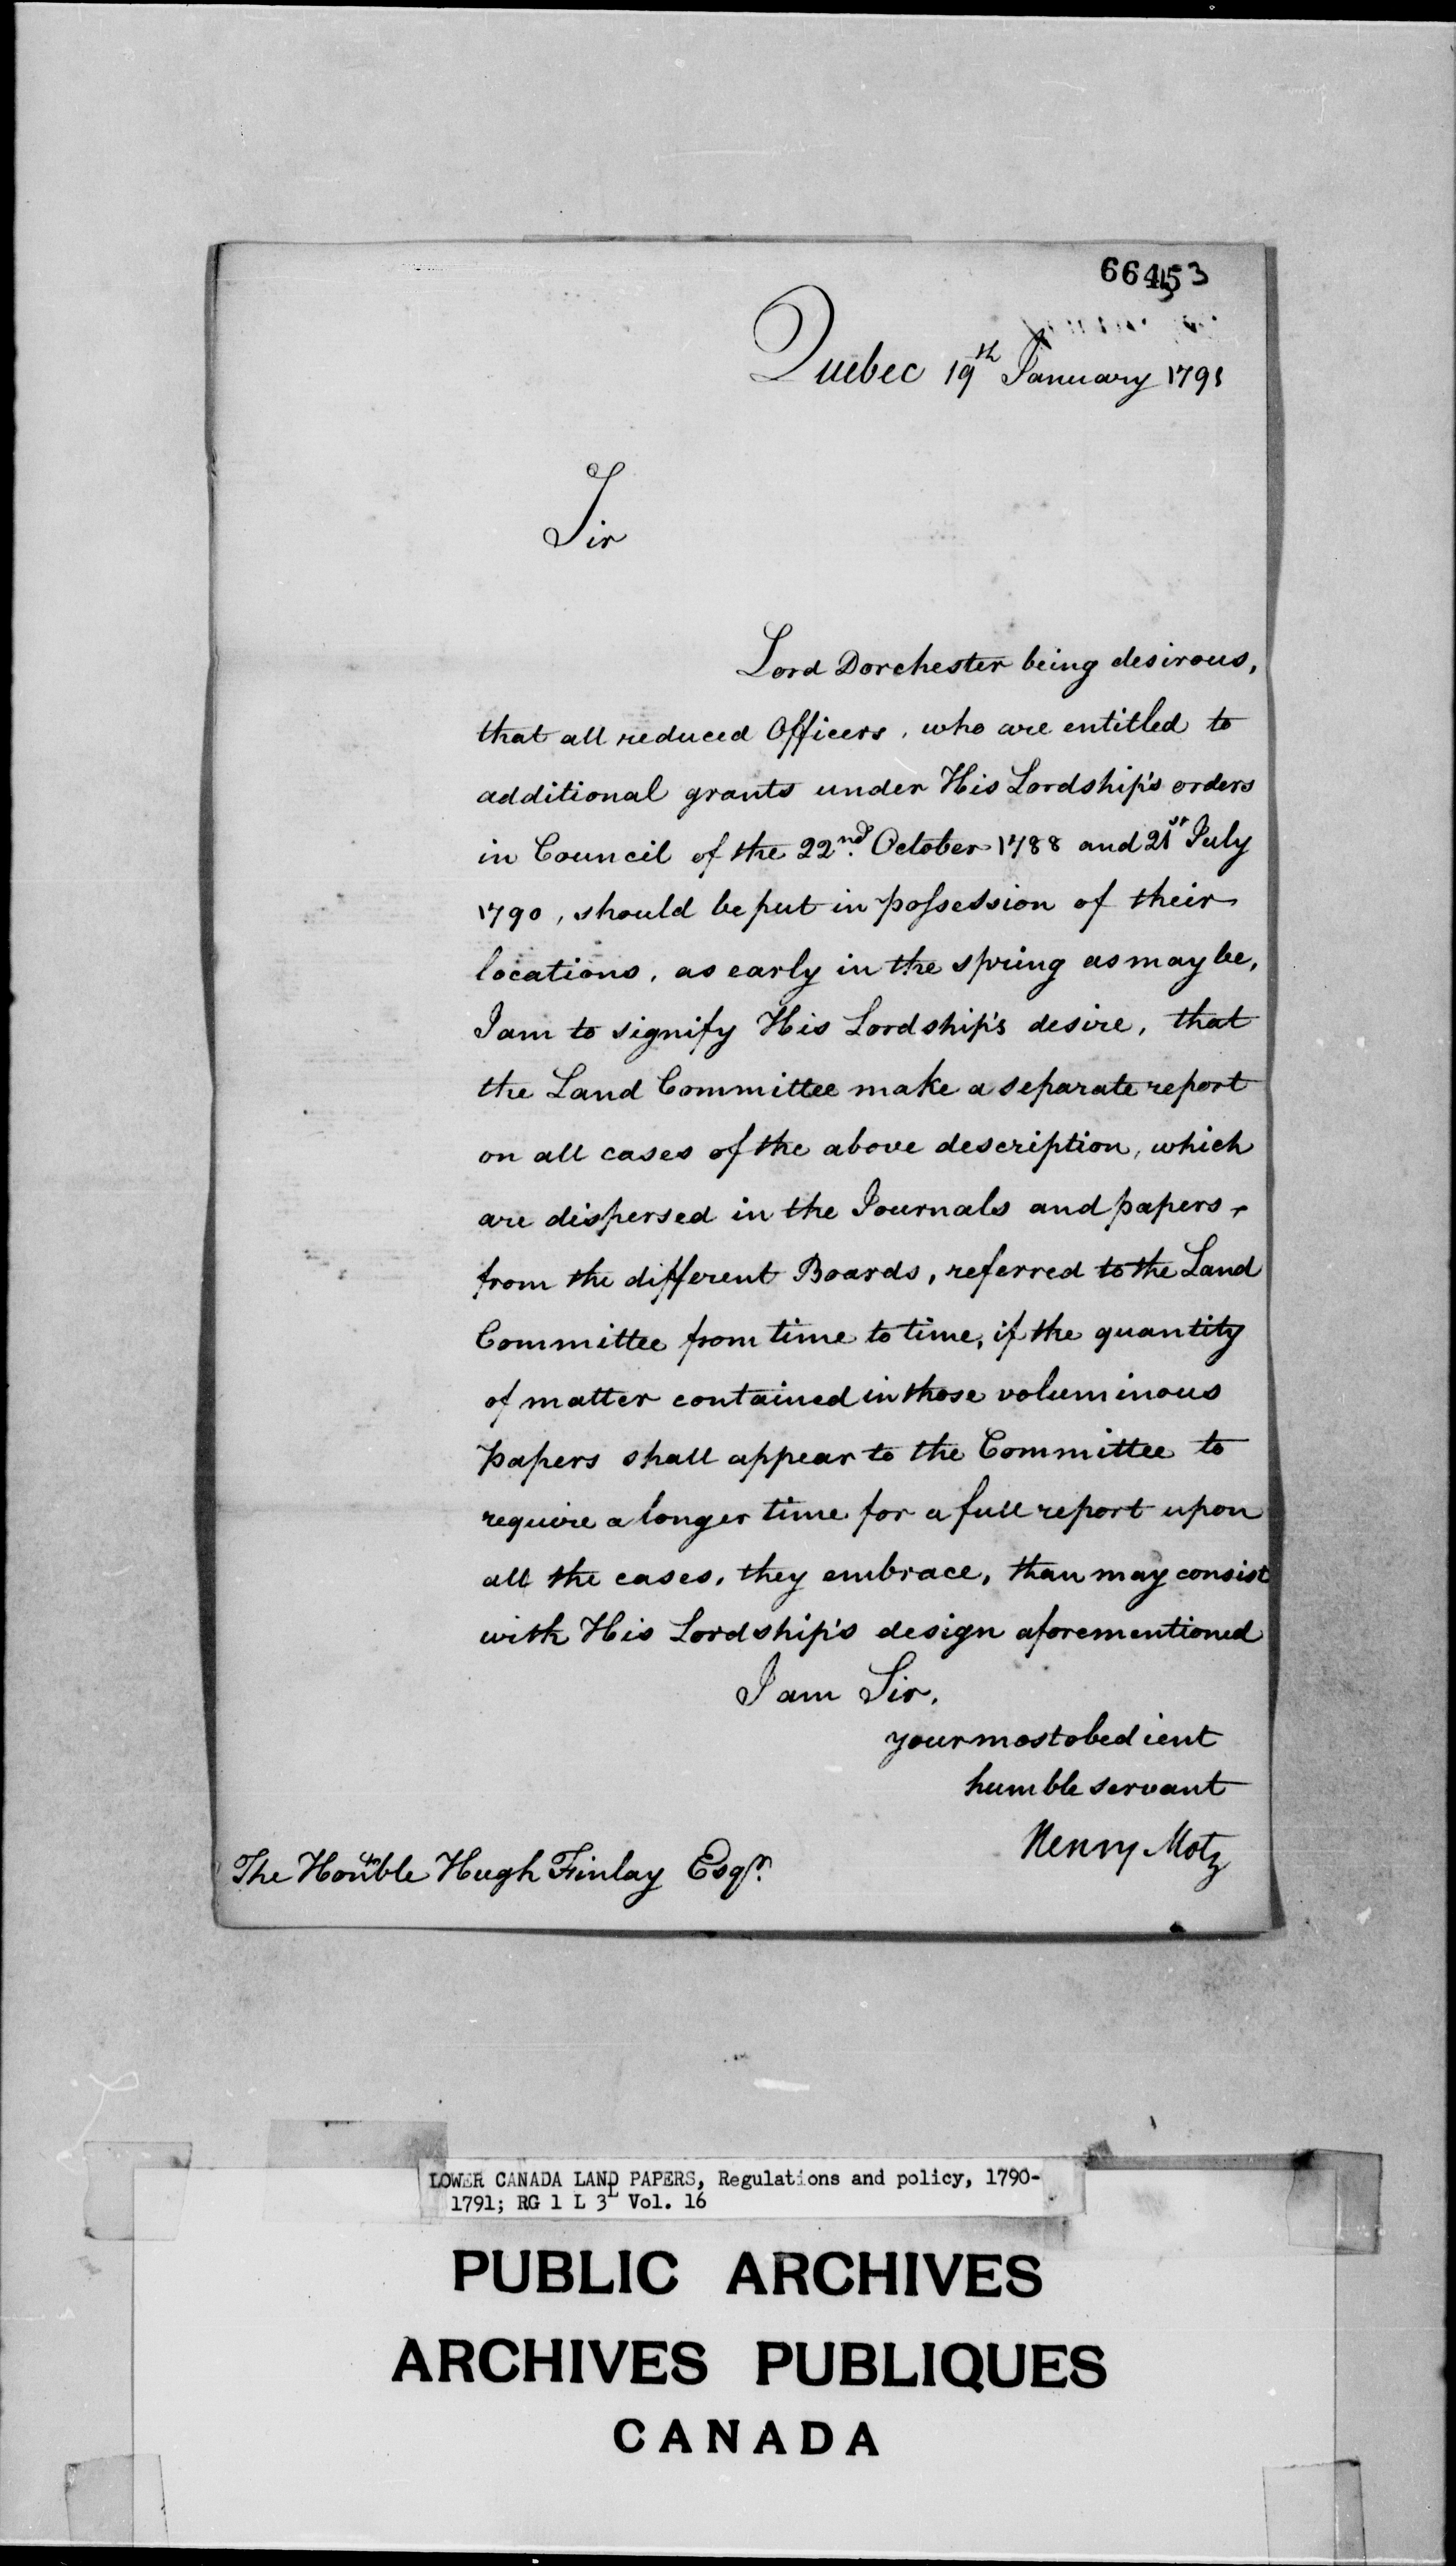 66453
Quebec 19th January 1791
Sir
Lord Dorchester being desirous,
that all reduced Officers, who are entitled to
additional grants under His Lordship's orders
in Council of the 22nd. October 1788 and 21st July
1790, should be put in possession of their
locations, as early in the spring as may be,
I am to signify His Lordship's desire, that
the Land Committee make a separate report
on all cases of the above description, which
are dispersed in the Journals and papers,
from the different Boards, referred to the Land
Committee from time to time, if the quantity
of matter contained in those voluminous
papers shall appear to the Committee to
require a longer time for a full report upon
all the cases, they embrace, than may consist
with His Lordship's design aforementioned
I am Sir,
your most obedient
humble servant
Henry Motz
The Honble Hugh Finlay Esqr.
LOWER CANADA LAND PAPERS, Regulations and policy, 1790-
1791; RG 1 L 3L Vol. 16
PUBLIC ARCHIVES
ARCHIVES PUBLIQUES
CANADA